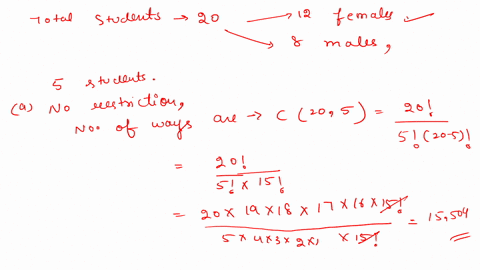 Total students → 20 → 12 females ✓
→ 8 males,
5 students.
(a) No restriction,
Noo of ways are → C (20,5) = 20! / 5! (20-5)!
= 20! / 5! × 15!
= 20 × 19 × 18 × 17 × 16 × 15! / 5 × 4 × 3 × 2 × 1 × 15! = 15,504